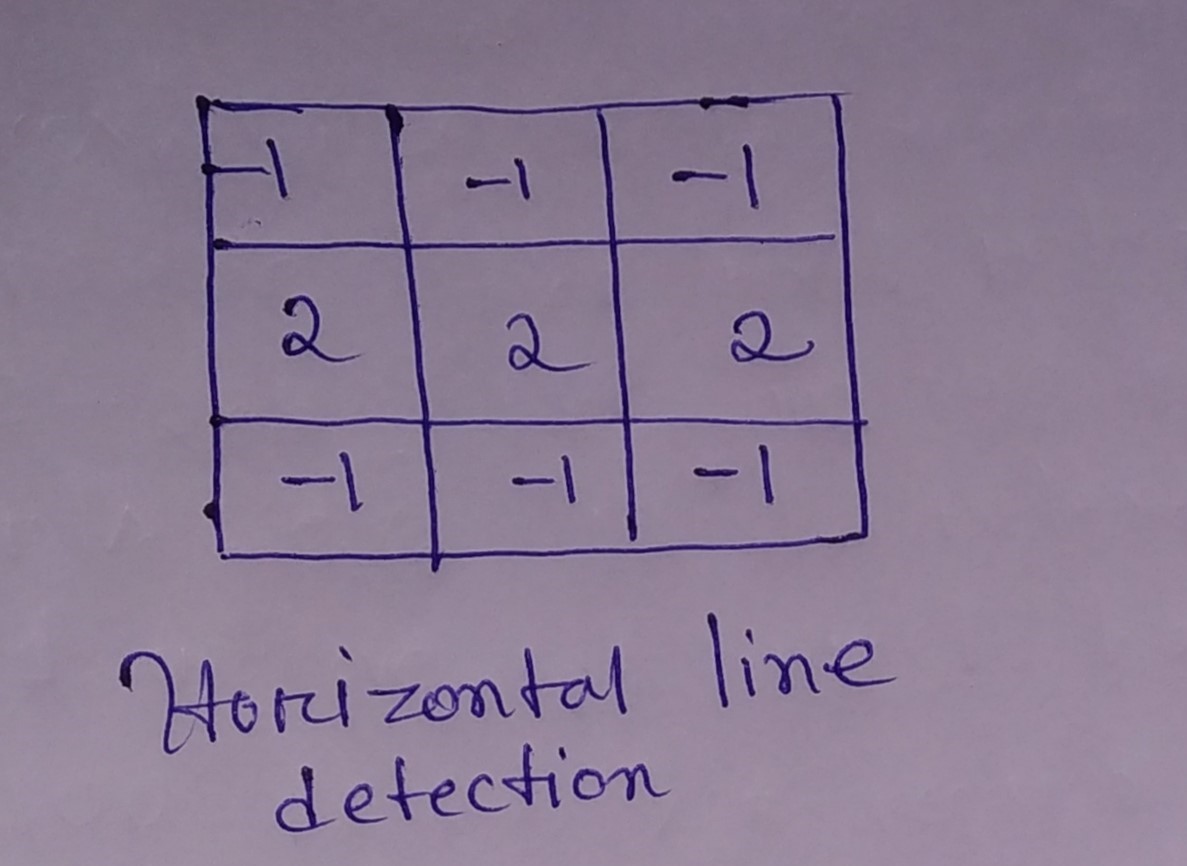 -1 -1 -1
2 2 2
-1 -1 -1
Horizontal line
detection